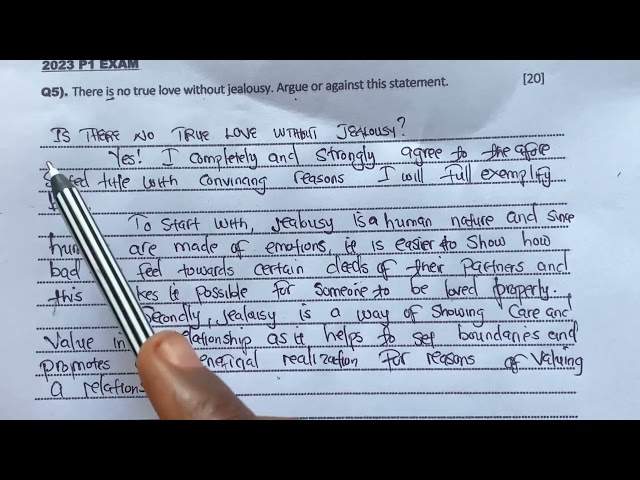 2023 P1 EXAM
Q5). There is no true love without jealousy. Argue or against this statement. [20]
IS THERE NO TRUE LOVE WITHOUT JEALOUSY?
Yes! I completely and strongly agree to the afore
title with convincing reasons I will full exemplify
To start with, jealousy is a human nature and since
are made of emotions, it is easier to show how
bad feel towards certain deeds of their partners and
this it possible for someone to be loved properly.
Secondly, jealousy is a way of showing care and
value in as it helps to set boundaries and
promotes realization for reasons of valuing
a